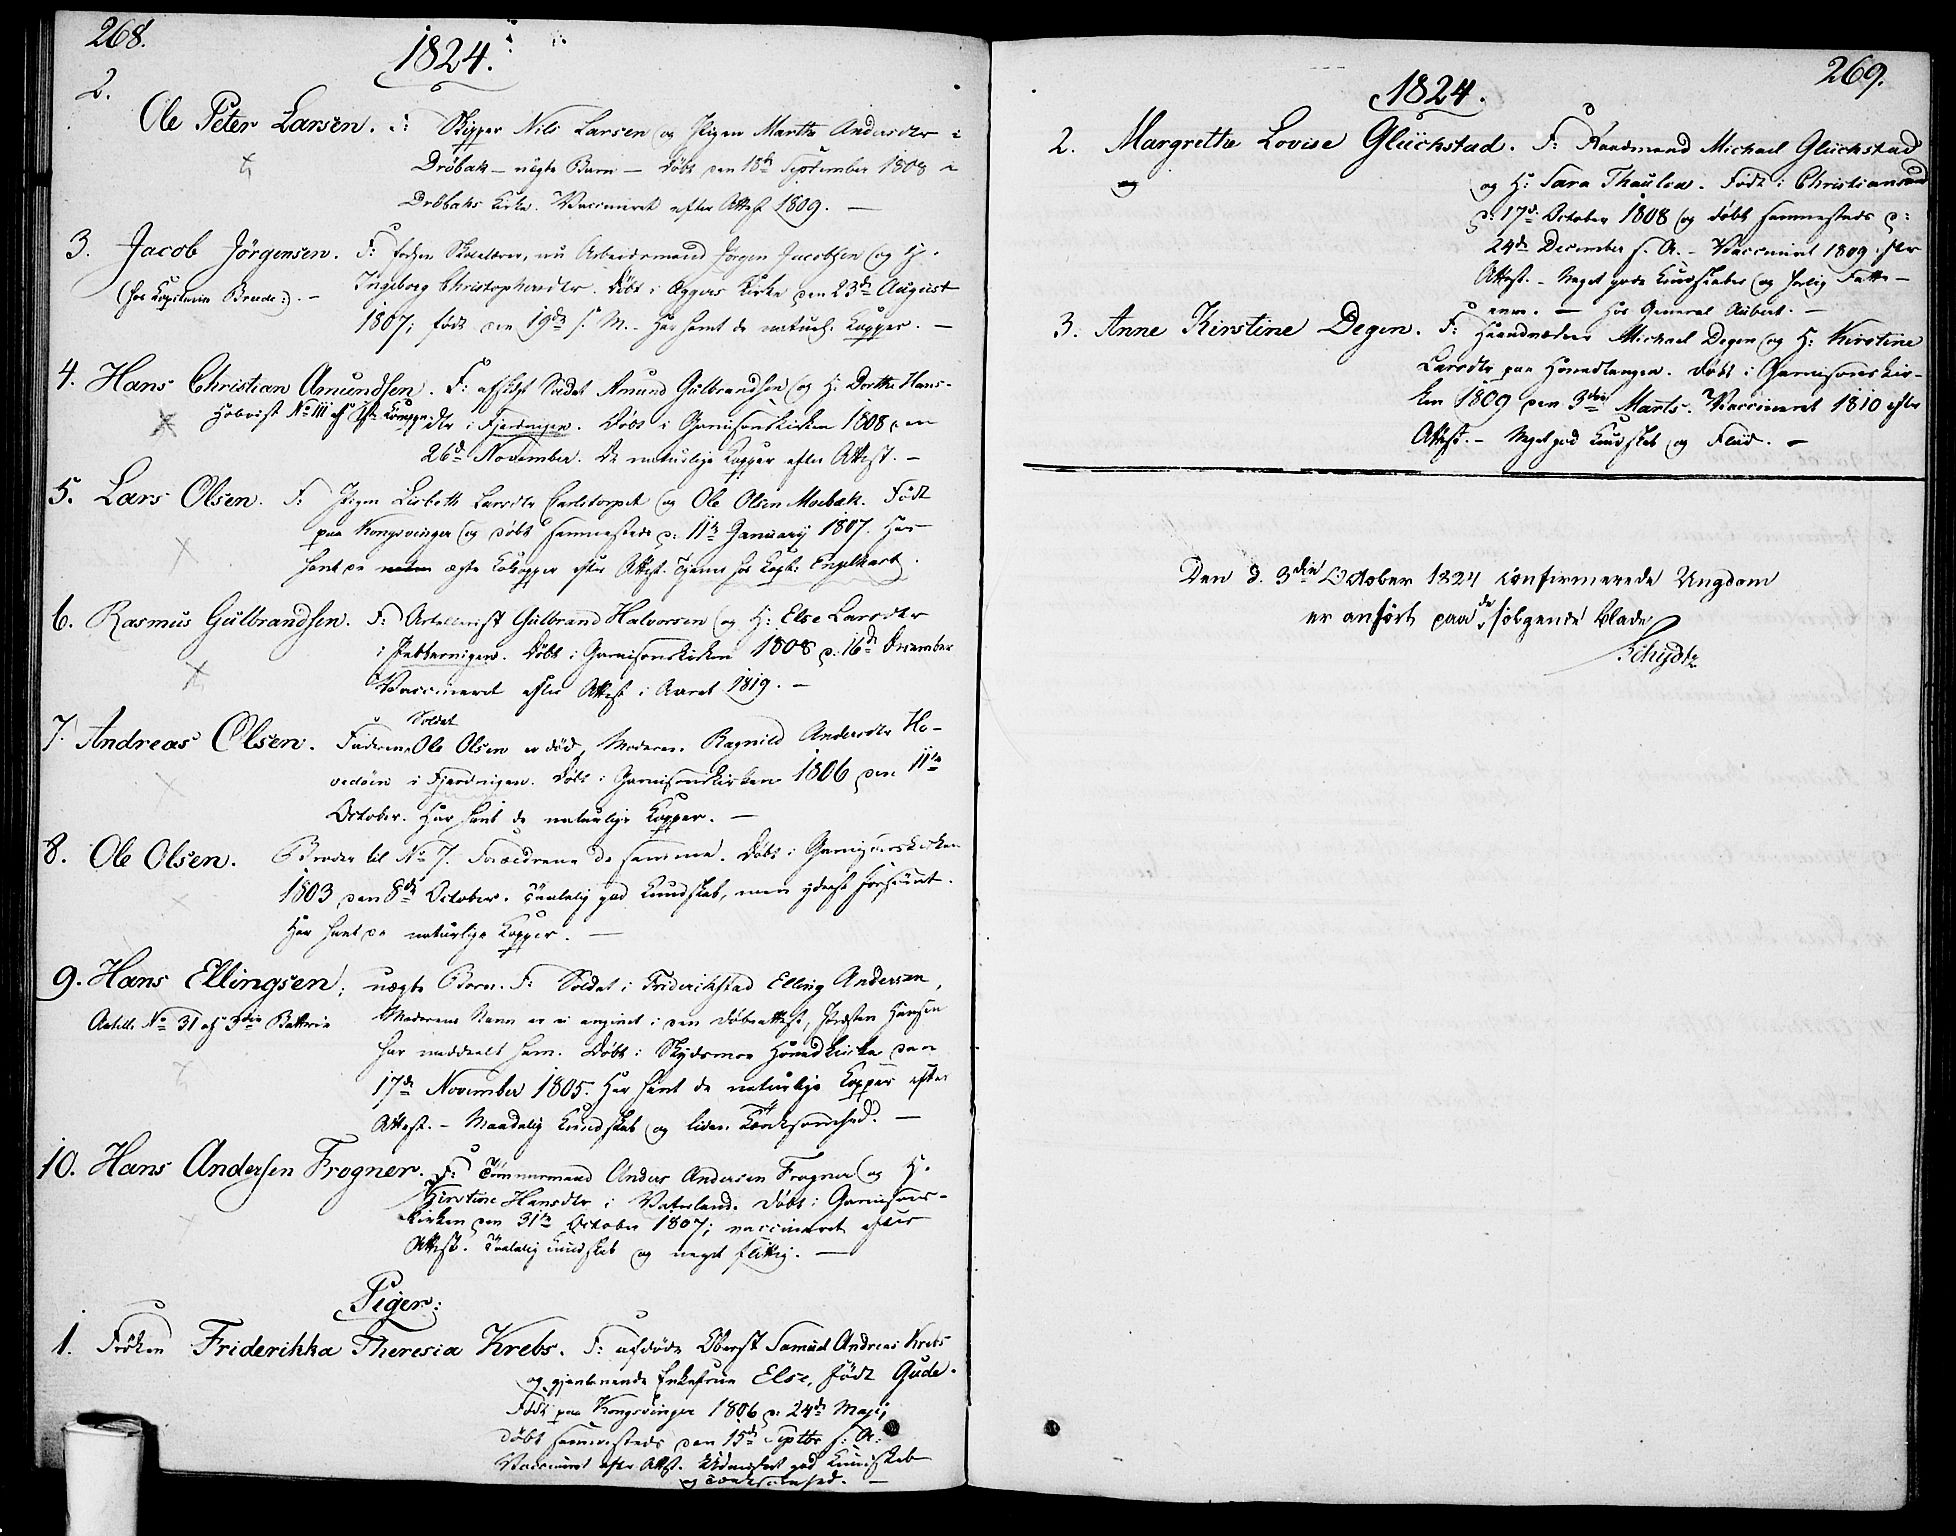 268.
1824.
2.
Ole Peter Larsen. F: Skipper Nils Larsen og Pigen Marthe Andersdtr i
Dröbak – uægte Barn – döbt den 18de September 1808 i
Dröbaks Kirke. Vaccineret efter Attest 1809. –
3. Jacob Jörgensen. F: forhen Skolelærer, nu Arbeidsmand Jörgen Jacobsen og H.
(hos Kapitain Brude:). – Ingeborg Christophersdtr. Döbt i Aggers Kirke den 23de August
1807; födt den 19de s. M. – Har havt de naturl. Kopper. –
4. Hans Christian Amundsen. F: afskt Soldat Amund Gulbrandsen og H: Dorthe Hans-
Hoboist No III af Komp. dtr i Fjerdingen. Döbt i Garnisonskirken 1808 den
26de November. De naturlige Kopper efter Attest. –
5. Lars Olsen. F: Pigen Lisbeth Larsdtr Carlstorpet og Ole Olsen Moebæk. Födt
paa Kongsvinger og döbt sammesteds d: 11te January 1807. Har
havt de ægte Kokopper efter Attest. Tjener hos Kapt: Engelhart.
6. Rasmus Gulbrandsen. F: Artillerist Gulbrand Halvorsen og H: Else Larsdtr
i Pebbervigen. Döbt i Garnisonskirken 1808 d. 16de December
Vaccineret efter Attest i Aaret 1819. –
Soldat
7. Andreas Olsen. Faderen Ole Olsen er död, Moderen Ragnild Andersdtr Ho-
vedöen i Fjerdingen. Döbt i Garnisonskirken 1806 den 11te
October. Har havt de naturlige Kopper. –
8. Ole Olsen. Broder til No 7. Forældrene de samme. Döbt i Garnisonskirken
1803 den 8de October. Taalelig god Kundskab, men yderst forsömt.
Har havt de naturlige Kopper. –
9. Hans Ellingsen; uægte Barn. F: Soldat i Friderichstad Elling Andersen,
Artill. No 31 af 3die Batterie Moderens Navn er ei angivet i den Döbeattest, Præsten Hansen
har meddeelt ham. Döbt i Skydsmoe Hovedkirke den
17de November 1805. Har havt de naturlige Kopper efter
Attest. – Maadelig Kundskab og liden Tænksomhed. –
10. Hans Andersen Frogner. F: Tömmermand Anders Andersen Frogner og H.
Kirstine Hansdtr i Vaterland. Döbt i Garnisons-
kirken den 31te October 1807; vaccineret efter
Attest. Taalelig Kundskab og meget flittig. –
Piger:
1. Fröken Friderikka Theresia Krebs. F: afdöde Oberst Samuel Andreas Krebs
og gjenlevende Enkefrue Else, födt Gude.
Födt paa Kongsvinger 1806 d: 24de Maji;
döbt sammesteds den 15de Septbr s: A:
Vaccineret efter Attst. Udmærket god Kundskab
og Tænksomhed. –
269.
1824.
2. Margrethe Lovise Glückstad. F: Kaadmand Michael Glückstad
og H: Sara Thaulow. Födt i Christiansund
d: 17de October 1808 og döbt sammesteds d:
24de December s. A. – Vaccineret 1809 efter
Attest. – Meget gode Kundskaber og herlig Fatte-
evne. – Hos General Aubert. –
3. Anne Kirstine Degen. F: Haandværker Michael Degen og H: Kirstine
Larsdtr paa Hovedtangen. Döbt i Garnisonskir-
ken 1809 den 3die Marts. Vaccineret 1810 efter
Attest. – Meget god Kundskab og Flid. –
Den d. 3die October 1824 confirmerede Ungdom
er anfört paa de fölgende Blade
Schydtz